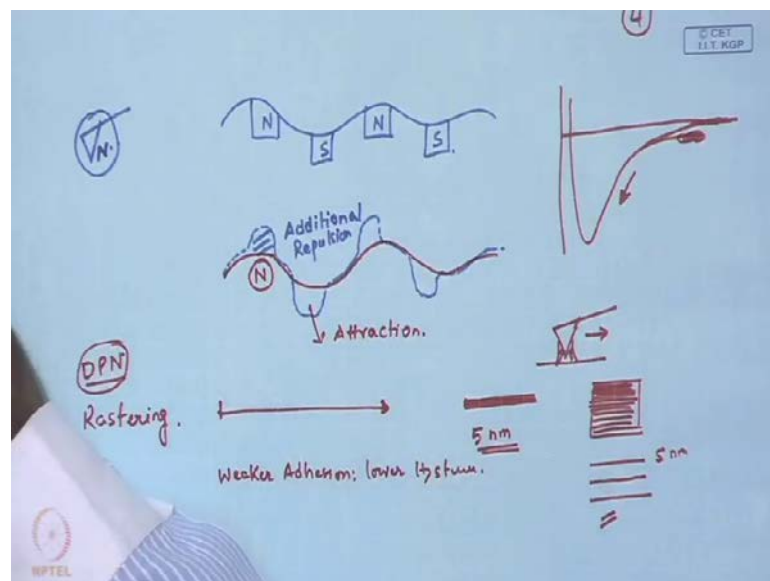 4
© CET
I.I.T. KGP
N
N
S
N
S
Additional
Repulsion
N
Attraction.
DPN
Rastering.
5 nm
5 nm
Weaker Adhesion; lower
NPTEL